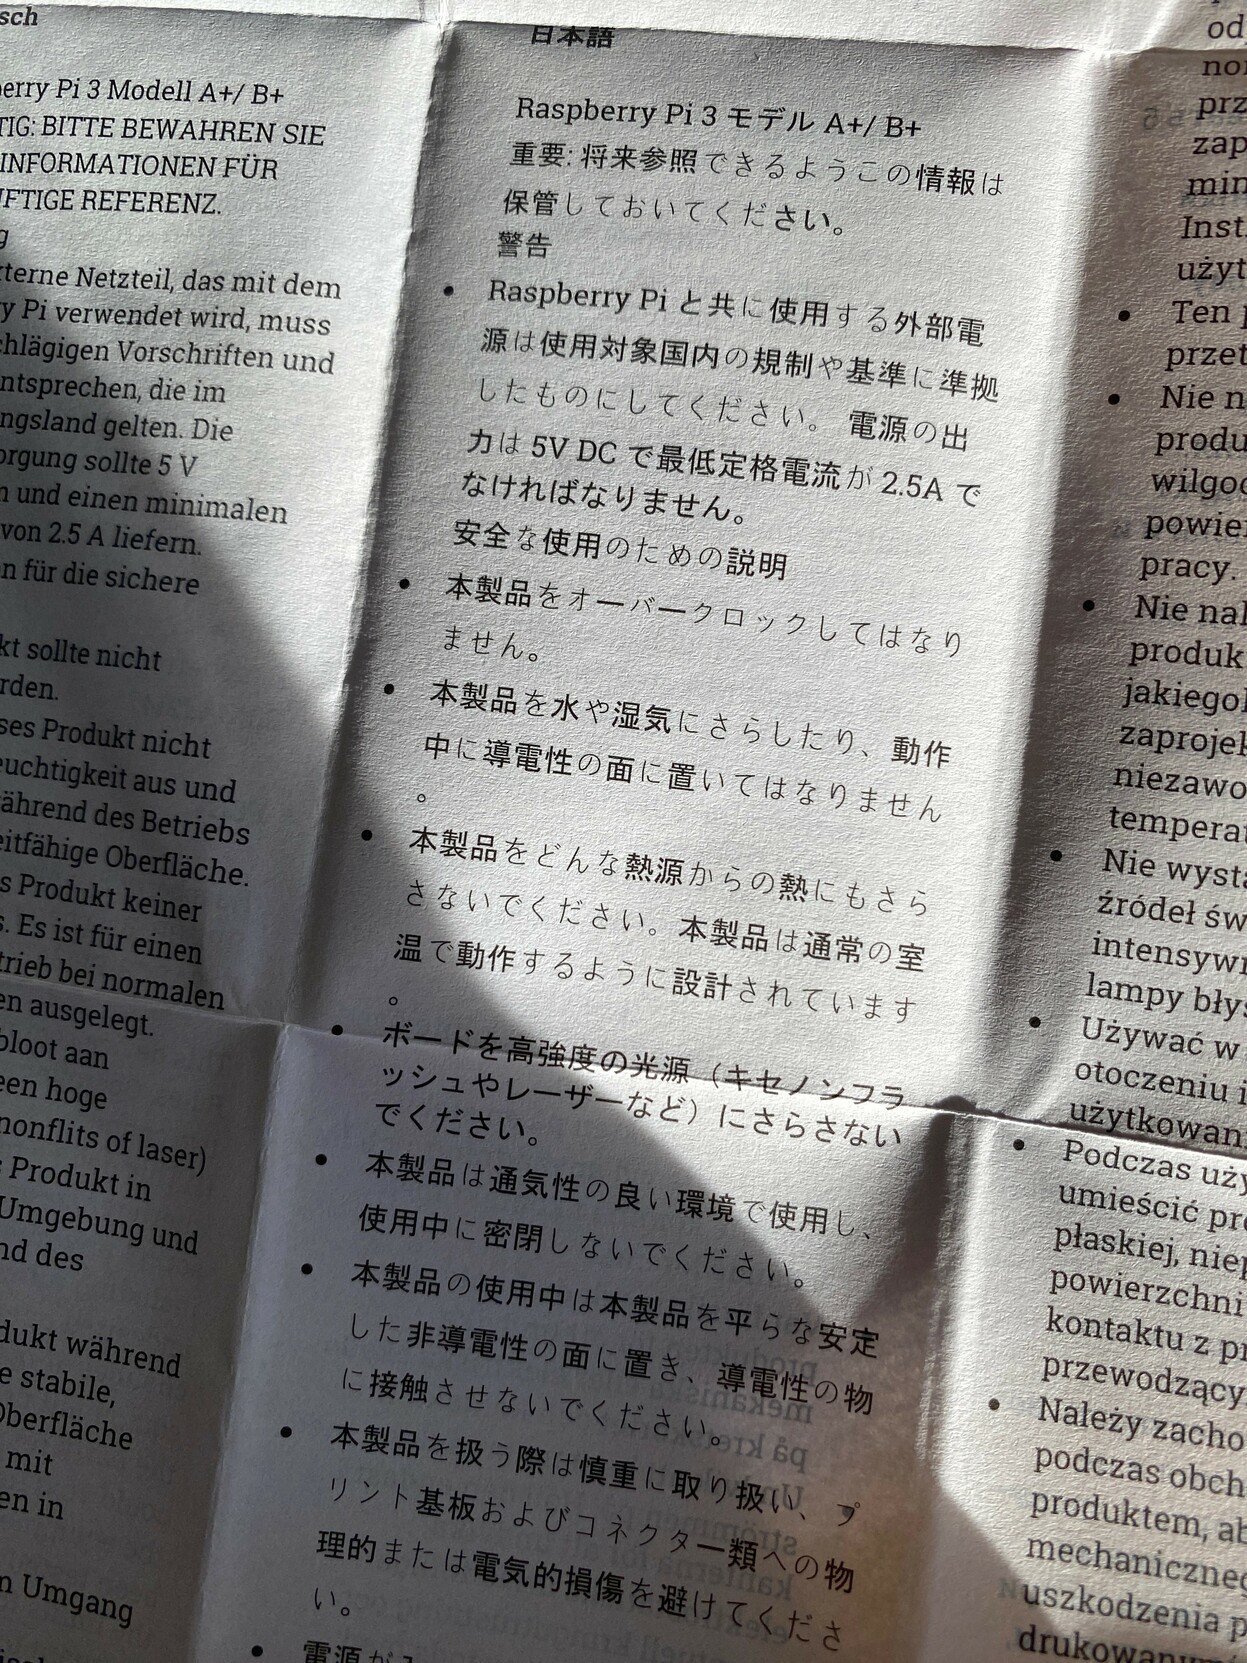 sch
erry Pi 3 Modell A+/ B+
TIG: BITTE BEWAHREN SIE
INFORMATIONEN FÜR
FTIGE REFERENZ.
g
terne Netzteil, das mit dem
y Pi verwendet wird, muss
chlägigen Vorschriften und
ntsprechen, die im
ngsland gelten. Die
orgung sollte 5 V
und einen minimalen
von 2.5 A liefern.
n für die sichere
kt sollte nicht
rden.
ses Produkt nicht
euchtigkeit aus und
ährend des Betriebs
eitfähige Oberfläche.
s Produkt keiner
s. Es ist für einen
trieb bei normalen
en ausgelegt.
bloot aan
een hoge
nonflits of laser)
s Produkt in
Umgebung und
nd des
dukt während
e stabile,
Oberfläche
mit
en in
n Umgang
日本語
Raspberry Pi 3 モデル A+/ B+
重要: 将来参照できるようこの情報は
保管しておいてください。
警告
• Raspberry Pi と共に使用する外部電
源は使用対象国内の規制や基準に準拠
したものにしてください。 電源の出
力は 5V DC で最低定格電流が 2.5A で
なければなりません。
安全な使用のための説明
• 本製品をオーバークロックしてはなり
ません。
• 本製品を水や湿気にさらしたり、動作
中に導電性の面に置いてはなりません
。
• 本製品をどんな熱源からの熱にもさら
さないでください。本製品は通常の室
温で動作するように設計されています
。
• ボードを高強度の光源（キセノンフラ
ッシュやレーザーなど）にさらさない
でください。
• 本製品は通気性の良い環境で使用し、
使用中に密閉しないでください。
• 本製品の使用中は本製品を平らな安定
した非導電性の面に置き、導電性の物
に接触させないでください。
• 本製品を扱う際は慎重に取り扱い、プ
リント基板およびコネクター類への物
理的または電気的損傷を避けてくださ
い。
• 電源が入
od
nor
prz
zap
min
Inst
użyt
• Ten p
przet
• Nie n
produ
wilgoc
powier
pracy.
• Nie nal
produk
jakiegol
zaprojek
niezawo
temperat
• Nie wysta
źródeł św
intensywn
lampy błys
• Używać w
otoczeniu i
użytkowan
• Podczas uży
umieścić pro
płaskiej, niep
powierzchni
kontaktu z pr
przewodzący
• Należy zacho
podczas obch
produktem, ab
mechaniczneg
uszkodzenia p
drukowanym